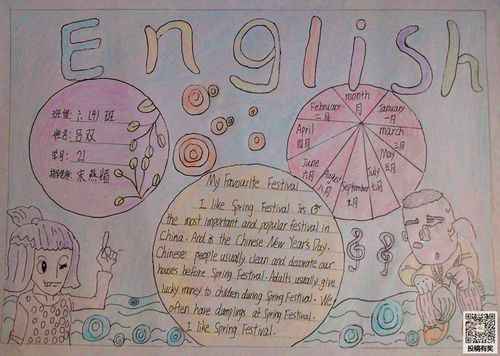 English
班级: 六(4)班
姓名: 吕双
学号: 21
month
月
January
一月
February
二月
march
三月
April
四月
May
五月
June
六月
July
七月
August
八月
September
九月
My Favourite Festival
I like Spring Festival. Is
the most important and popular festival in
China. And is the Chinese New Year's Day.
Chinese people usually clean and decorate our
houses before Spring Festival. Adults usually give
lucky money to children during Spring Festival. We
often have dumplings at Spring Festival.
I like Spring Festival.
投稿有奖